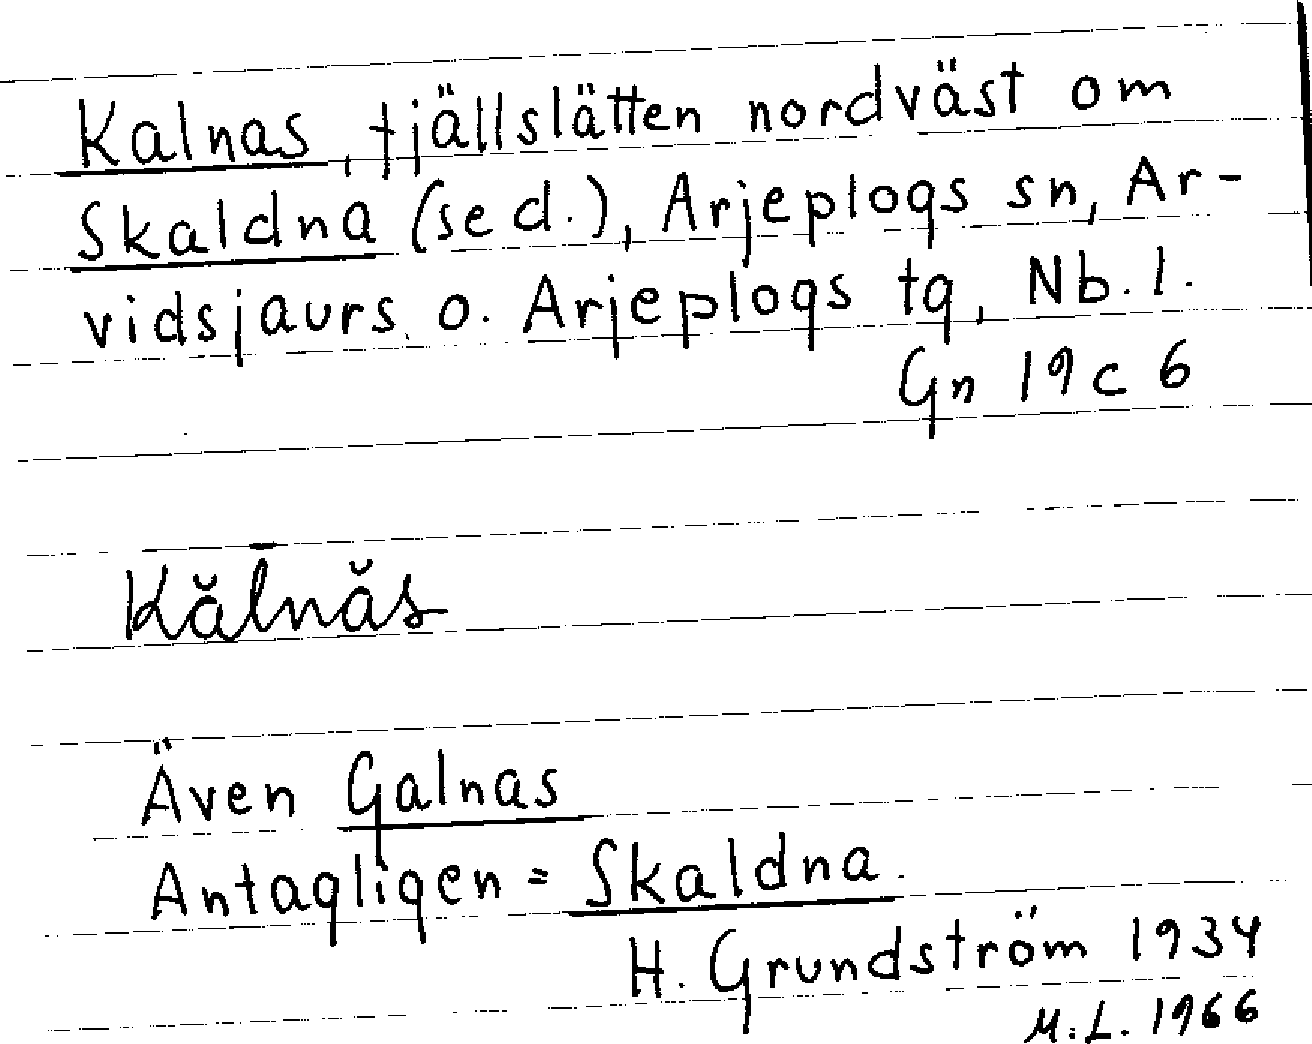 Kalnas, fjällslätten nordväst om
Skaldna (se d.), Arjeplogs sn, Ar-
vidsjaurs o. Arjeplogs tg, Nb. l.
Gn 19 c 6
Kălnăs
Även Galnas
Antagligen = Skaldna.
H. Grundström 1934
M. L. 1966